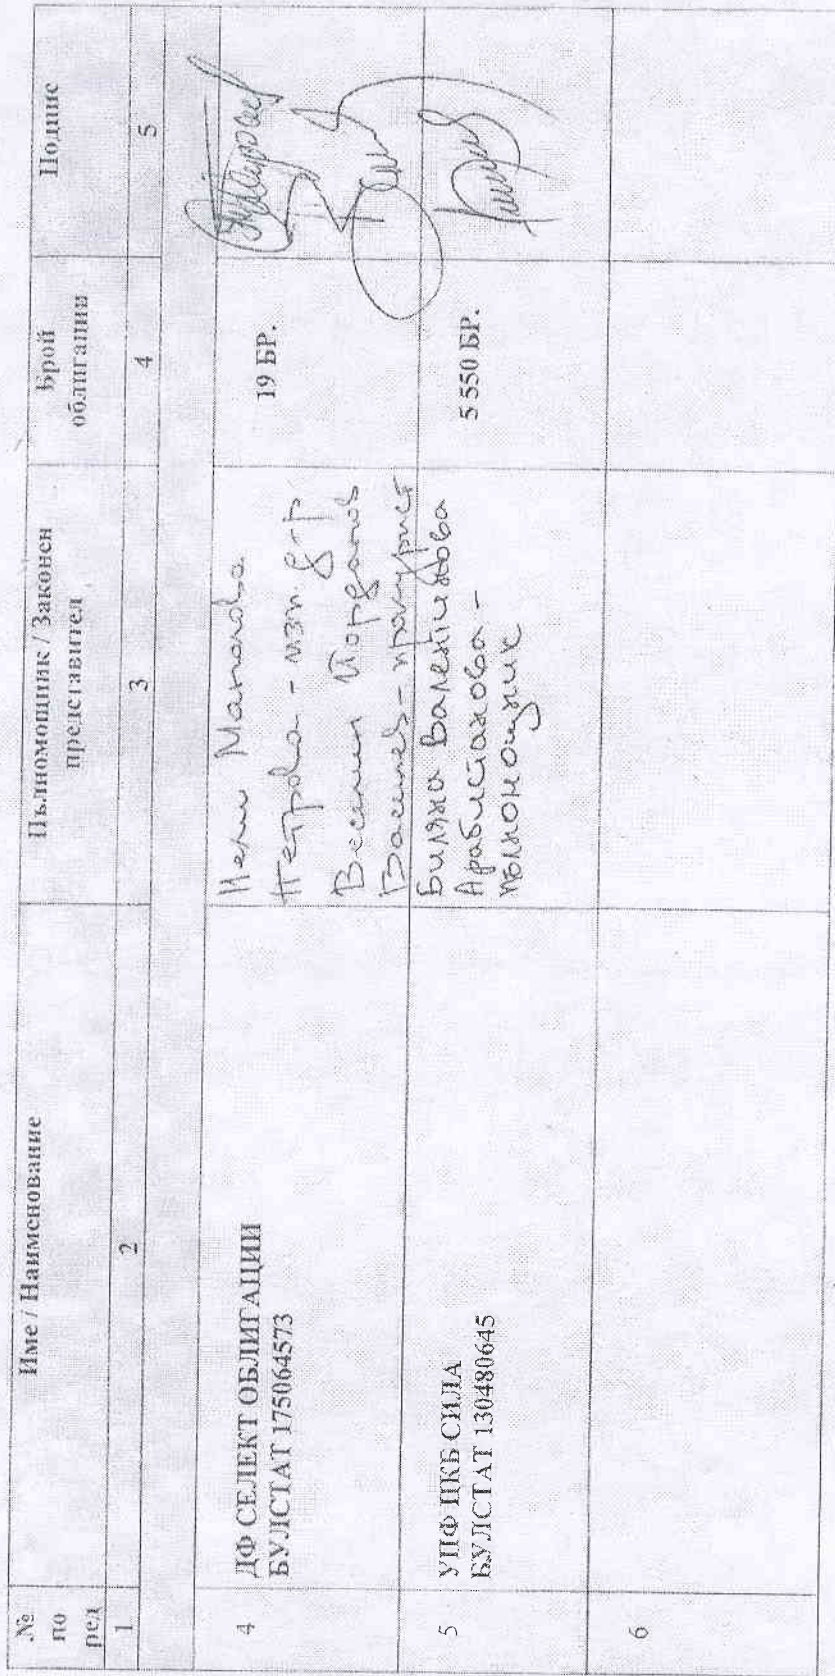 №
по
ред
Име / Наименование
Пълномощник / Законен
представител
Брой
облигации
Подпис
1
2
3
4
5
4
ДФ СЕЛЕКТ ОБЛИГАЦИИ
БУЛСТАТ 175064573
Нели Манолова
Петрова - изп. д-р
Веселин Йорданов
Василев - прокурист
19 БР.
5
УПФ ПКБ СИЛА
БУЛСТАТ 130480645
Биляна Валентинова
Арабистанова -
пълномощник
5 550 БР.
6